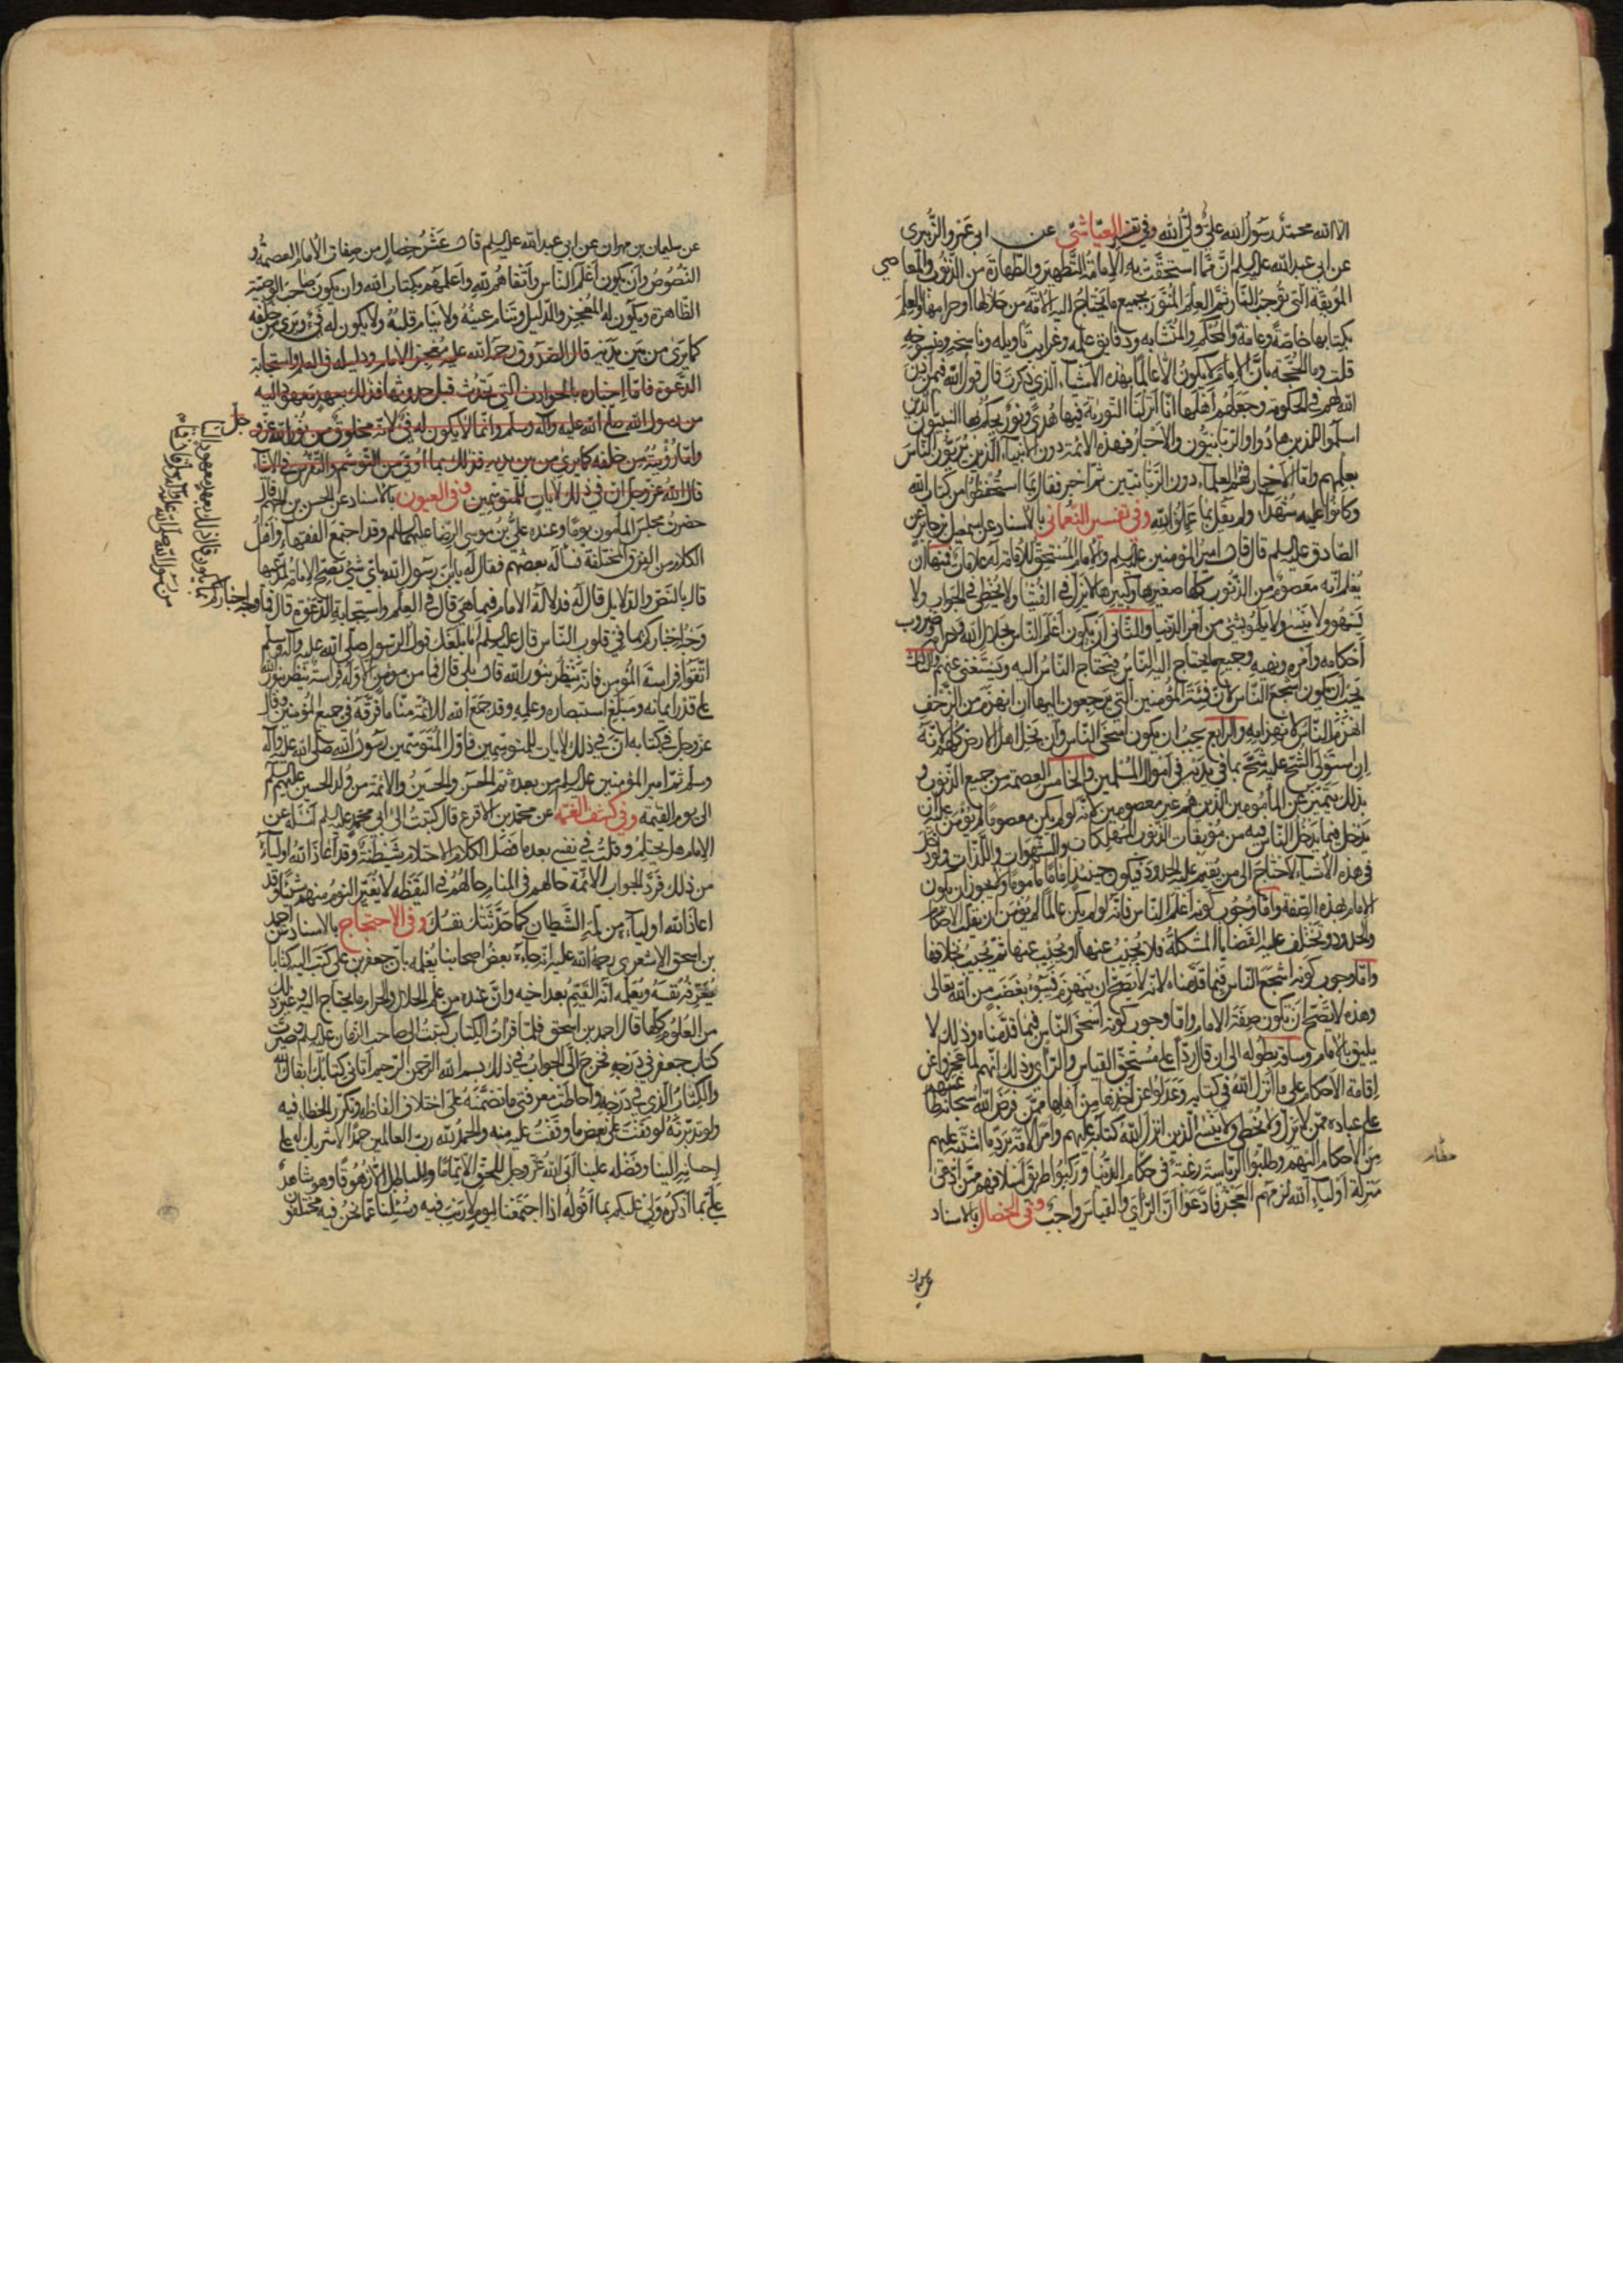 الا الله محمد رسول الله علي ولي الله وفي تفسير العياشي عن ابي عمرو الزبيري
عن ابي عبد الله عليه السلم ان مما استحقت به الامامة التطهير والطهارة من الذنوب والمعاصي
الموبقة التي توجب النار ثم العلم المنور بجميع ما يحتاج اليه الامة من حلالها وحرامها والعلم
بكتابها خاصه وعامه والمحكم والمتشابه ودقايق علمه وغرايب تاويله وناسخه ومنسوخه
قلت وما الحجة بان الامام لا يكون الا عالما بهذه الاشياء الذي ذكرت قال قول الله فيمن اذن
الله لهم في الحكومة وجعلهم اهلها انا انزلنا التورية فيها هدى ونور يحكم بها النبيون الذين
اسلموا للذين هادوا والربانيون والاحبار فهذه الائمة دون الانبياء الذين يربون الناس
بعلمهم واما الاحبار فهم العلماء دون الربانيين ثم اخبر فقال بما استحفظوا من كتاب الله
وكانوا عليه شهداء ولم يقل بما حملوا منه وفي تفسير النعماني بالاسناد عن اسمعيل بن جابر عن
الصادق عليه السلم قال قال امير المؤمنين عليه السلم والامام المستحق للامامة له علامات فمنها ان
يعلم انه معصوم من الذنوب كلها صغيرها وكبيرها لا يزل في الفتيا ولا يخطي في الجواب ولا
يسهو ولا ينسى ولا يلهو بشئ من امر الدنيا والثاني ان يكون اعلم الناس بحلال الله وحرامه وضروب
احكامه وامره ونهيه وجميع ما يحتاج اليه الناس فيحتاج الناس اليه ويستغني عنهم والثالث
يجب ان يكون اشجع الناس لانه فئة المؤمنين التي يرجعون اليها ان انهزم من الزحف
انهزم الناس لانهزامه والرابع يجب ان يكون اسخى الناس وان بخل اهل الارض كلهم لانه
ان استولى الشح عليه شح بما في يديه في اموال المسلمين والخامس العصمة من جميع الذنوب و
بذلك يتميز عن المأمومين الذين هم غير معصومين لانه لو لم يكن معصوما لم يؤمن عليه ان
يدخل فيما يدخل الناس فيه من موبقات الذنوب المهلكات والشهوات واللذات ولو دخل
في هذه الاشياء لاحتاج الى من يقيم عليه الحدود فيكون حينئذ اماما ماموما ولا يجوز ان يكون
الامام بهذه الصفة واما وجوب كونه اعلم الناس فانه لو لم يكن عالما لم يؤمن ان يقلب الاحكام
والحدود وتختلف عليه القضايا المشكلة فلا يجيب عنها او يجيب عنها ثم يجيب بخلافها
واما وجوب كونه اشجع الناس فبما قدمناه لانه لا يصح ان ينهزم فيبوء بغضب من الله تعالى
وهذه لا يصح ان تكون صفة الامام واما وجوب كونه اسخى الناس فبما قدمناه وذلك لا
يليق بالامام وساقه بطوله الى ان قال ردا على مستحقي القياس والراي وذلك انهم لما عجزوا عن
اقامة الاحكام على ما انزل الله في كتابه وعدلوا عن اخذها من اهلها ممن فرض الله سبحانه طاعتهم
على عباده ممن لا يزل ولا يخطي ولا ينسى الذين انزل الله كتابه عليهم وامر الامة برد ما اشتبه عليهم
من الاحكام اليهم وطلبوا الرياسة رغبة في حكام الدنيا وركبوا طريق اسلافهم ممن ادعى
منزلة اولياء الله لزمهم العجز فادعوا ان الراي والقياس واجب وفي الخصال بالاسناد
عن سليمان بن مهران عن ابي عبد الله عليه السلم قال عشر خصال من صفات الامام العصمة و
النصوص وان يكون اعلم الناس واتقاهم لله واعلمهم بكتاب الله وان يكون صاحب الوصية
الظاهرة ويكون له المعجز والدليل وتنام عينه ولا ينام قلبه ولا يكون له فئ ويرى من خلفه
كما يرى من بين يديه قال الصدوق رحمه الله عليه معجز الامام ودليله في العلم واستجابة
الدعوة فاما اخباره بالحوادث التي تحدث قبل حدوثها فذلك بعهد معهود اليه
من رسول الله صلى الله عليه وآله وسلم وانما لا يكون له فئ لانه مخلوق من نور الله عز و جل
واما رؤيته من خلفه كما يرى من بين يديه فذلك بما اوتي من التوسم والتفرس في الاشياء
قال الله عز وجل ان في ذلك لايات للمتوسمين وفي العيون بالاسناد عن الحسن بن الجهم قال
حضرت مجلس المامون يوما وعنده علي بن موسى الرضا عليهما السلم وقد اجتمع الفقهاء واهل
الكلام من الفرق المختلفة فسأله بعضهم فقال له يا بن رسول الله باي شئ تصح الامامة لمدعيها
قال بالنص والدلايل قال له فدلالة الامام فيما هي قال في العلم واستجابة الدعوة قال فما وجه اخباركم
وجه اخباركم بما في قلوب الناس قال عليه السلم اما بلغك قول الرسول صلى الله عليه وآله وسلم
اتقوا فراسة المؤمن فانه ينظر بنور الله قال بلى قال فما من مؤمن الا وله فراسة ينظر بنور الله
على قدر ايمانه ومبلغ استبصاره وعلمه وقد جمع الله للائمة منا ما فرقه في جميع المؤمنين وقال
عز وجل في كتابه ان في ذلك لايات للمتوسمين فاول المتوسمين رسول الله صلى الله عليه وآله
وسلم ثم امير المؤمنين عليه السلم من بعده ثم الحسن والحسين والائمة من ولد الحسين عليهم السلم
الى يوم القيمة وفي كشف الغمة عن محمد بن الاقرع قال كتبت الى ابي محمد عليه السلم اسئله عن
الامام هل يحتلم وقلت في نفسي بعد ما فصل الكلام الاحتلام شيطنة وقد اعاذ الله اولياءه
من ذلك فرد الجواب الائمة حالهم في المنام حالهم في اليقظة لا يغير النوم منهم شيئا وقد
اعاذ الله اولياءه من لمة الشيطان كما حدثتك نفسك وفي الاحتجاج بالاسناد عن احمد
بن اسحق الاشعري رحمة الله عليه انه جاءه بعض اصحابنا يعلمه بان جعفر بن علي كتب اليه كتابا
يعرفه نفسه ويعلمه انه القيم بعد اخيه وان عنده من علم الحلال والحرام ما يحتاج اليه وغير ذلك
من العلوم كلها قال احمد بن اسحق فلما قرات الكتاب كتبت الى صاحب الزمان عليه السلم وصيرت
كتاب جعفر في درجه فخرج الي الجواب في ذلك بسم الله الرحمن الرحيم اتاني كتابك ابقاك الله
والكتاب الذي في درجه واحاطت معرفتي بما تضمنه على اختلاف الفاظه وتكرر الخطا فيه
ولو تدبرته لوقفت على بعض ما وقفت عليه منه والحمد لله رب العالمين حمدا لا شريك له على
احسانه الينا وفضله علينا ابى الله عز وجل للحق الا تماما وللباطل الا زهوقا وهو شاهد
علي بما اذكره ولي عليكم بما اقوله اذا اجتمعنا ليوم لا ريب فيه وسئلنا عما نحن فيه مختلفون
بما يكون قال ذلك بعهد معهود الينا
من رسول الله صلى الله عليه وآله